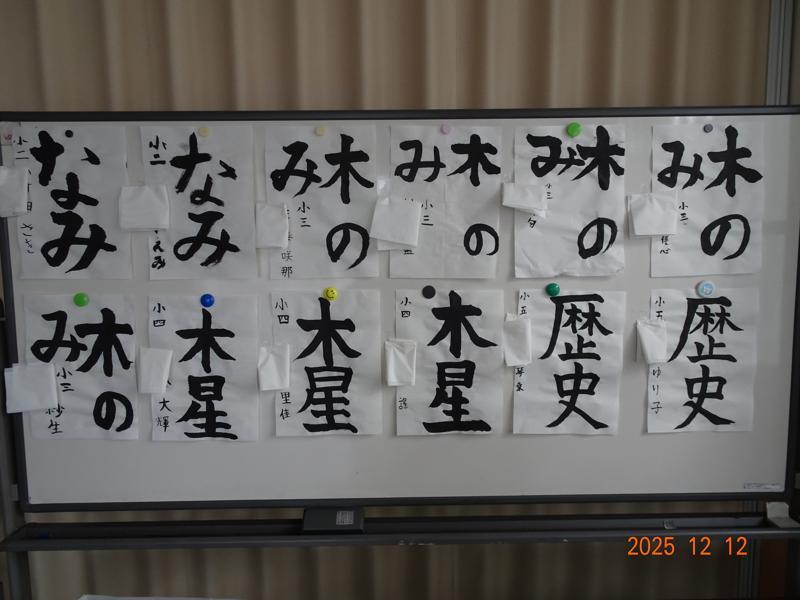 なみ
小二
なみ
小二
木の
み
小三
咲那
木の
み
小三
木の
み
小三
木の
み
小三
佳心
木の
み
小三
紗生
木星
小四
大輝
木星
小四
里佳
木星
小四
歴史
小五
歴史
小五
ゆり子
2025 12 12